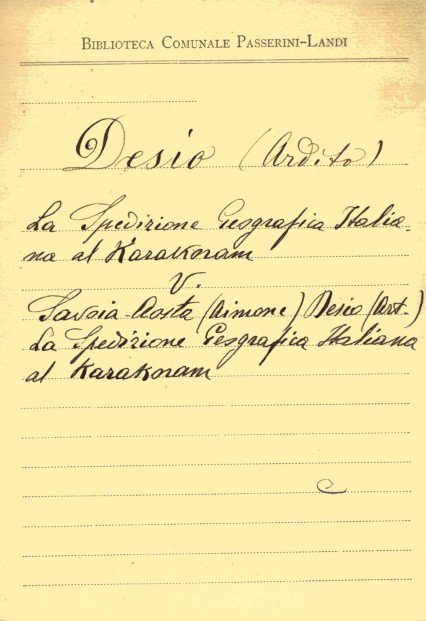 BIBLIOTECA COMUNALE PASSERINI-LANDI
Desio (Ardito)
La Spedizione Geografica Italia-
na al Karakoram
V.
Savoia-Aosta (Aimone) Desio (Art.)
La Spedizione Geografica Italiana
al Karakoram
C